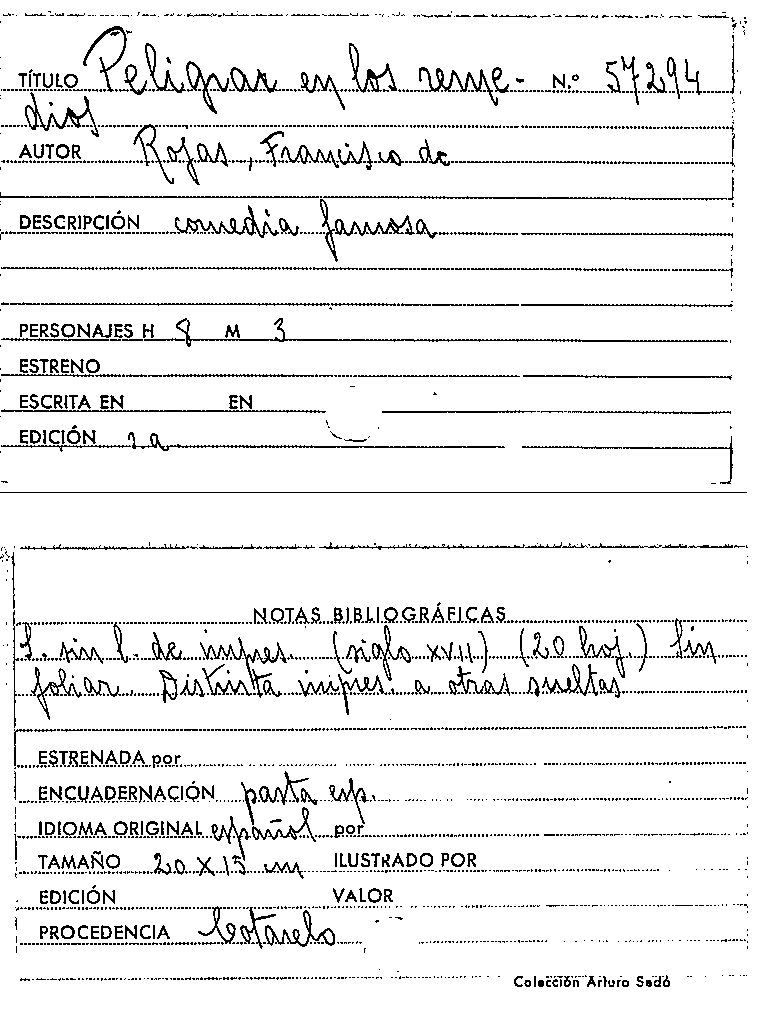 TÍTULO Peligrar en los reme- N.º 57294
dios
AUTOR Rojas, Francisco de
DESCRIPCIÓN comedia famosa
PERSONAJES H 8 M 3
ESTRENO
ESCRITA EN EN
EDICIÓN s.a.
NOTAS BIBLIOGRÁFICAS
S. sin l. de impres. (siglo XVII) (20 hoj.) Sin
foliar. Distinta impres. a otras sueltas
ESTRENADA por
ENCUADERNACIÓN pasta esp.
IDIOMA ORIGINAL español por
TAMAÑO 20 X 15 cm ILUSTRADO POR
EDICIÓN VALOR
PROCEDENCIA Cotarelo
Colección Arturo Sedó